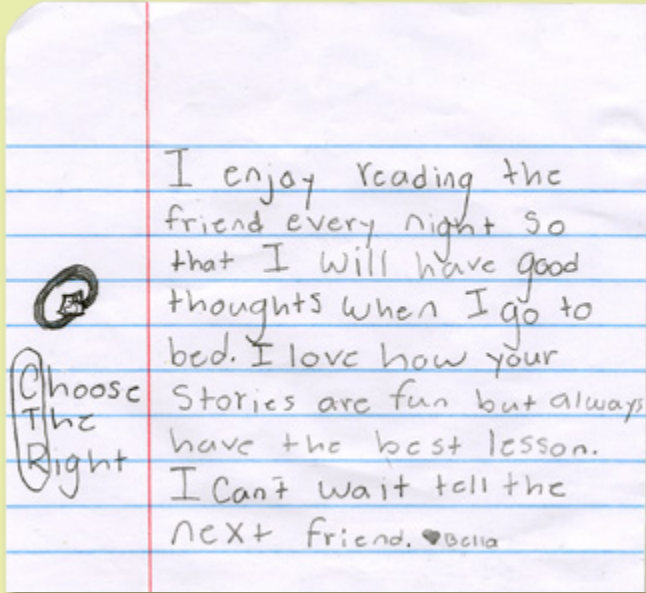 I enjoy reading the
friend every night so
that I will have good
thoughts when I go to
bed. I love how your
Stories are fun but always
have the best lesson.
I Can't wait tell the
next friend. ♥Bella
Choose
The
Right